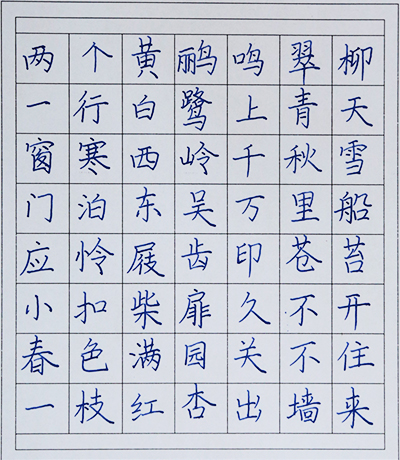 两个黄鹂鸣翠柳
一行白鹭上青天
窗寒西岭千秋雪
门泊东吴万里船
应怜屐齿印苍苔
小扣柴扉久不开
春色满园关不住
一枝红杏出墙来